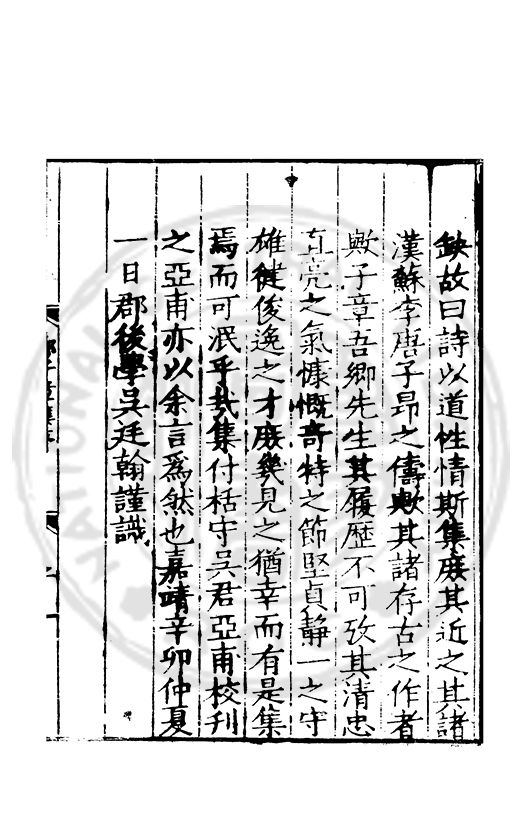 缺故曰詩以道性情斯集庶其近之其諸
漢蘇李唐子昂之儔歟其諸存古之作者
歟子章吾鄉先生其履歷不可攷其清忠
直亮之氣慷慨奇特之節堅貞靜一之守
雄健俊逸之才庶幾見之猶幸而有是集
焉而可泯乎哉集付栝守吳君亞甫校刊
之亞甫亦以余言為然也嘉靖辛卯仲夏
一日郡後學吳廷翰謹識
NATIONAL